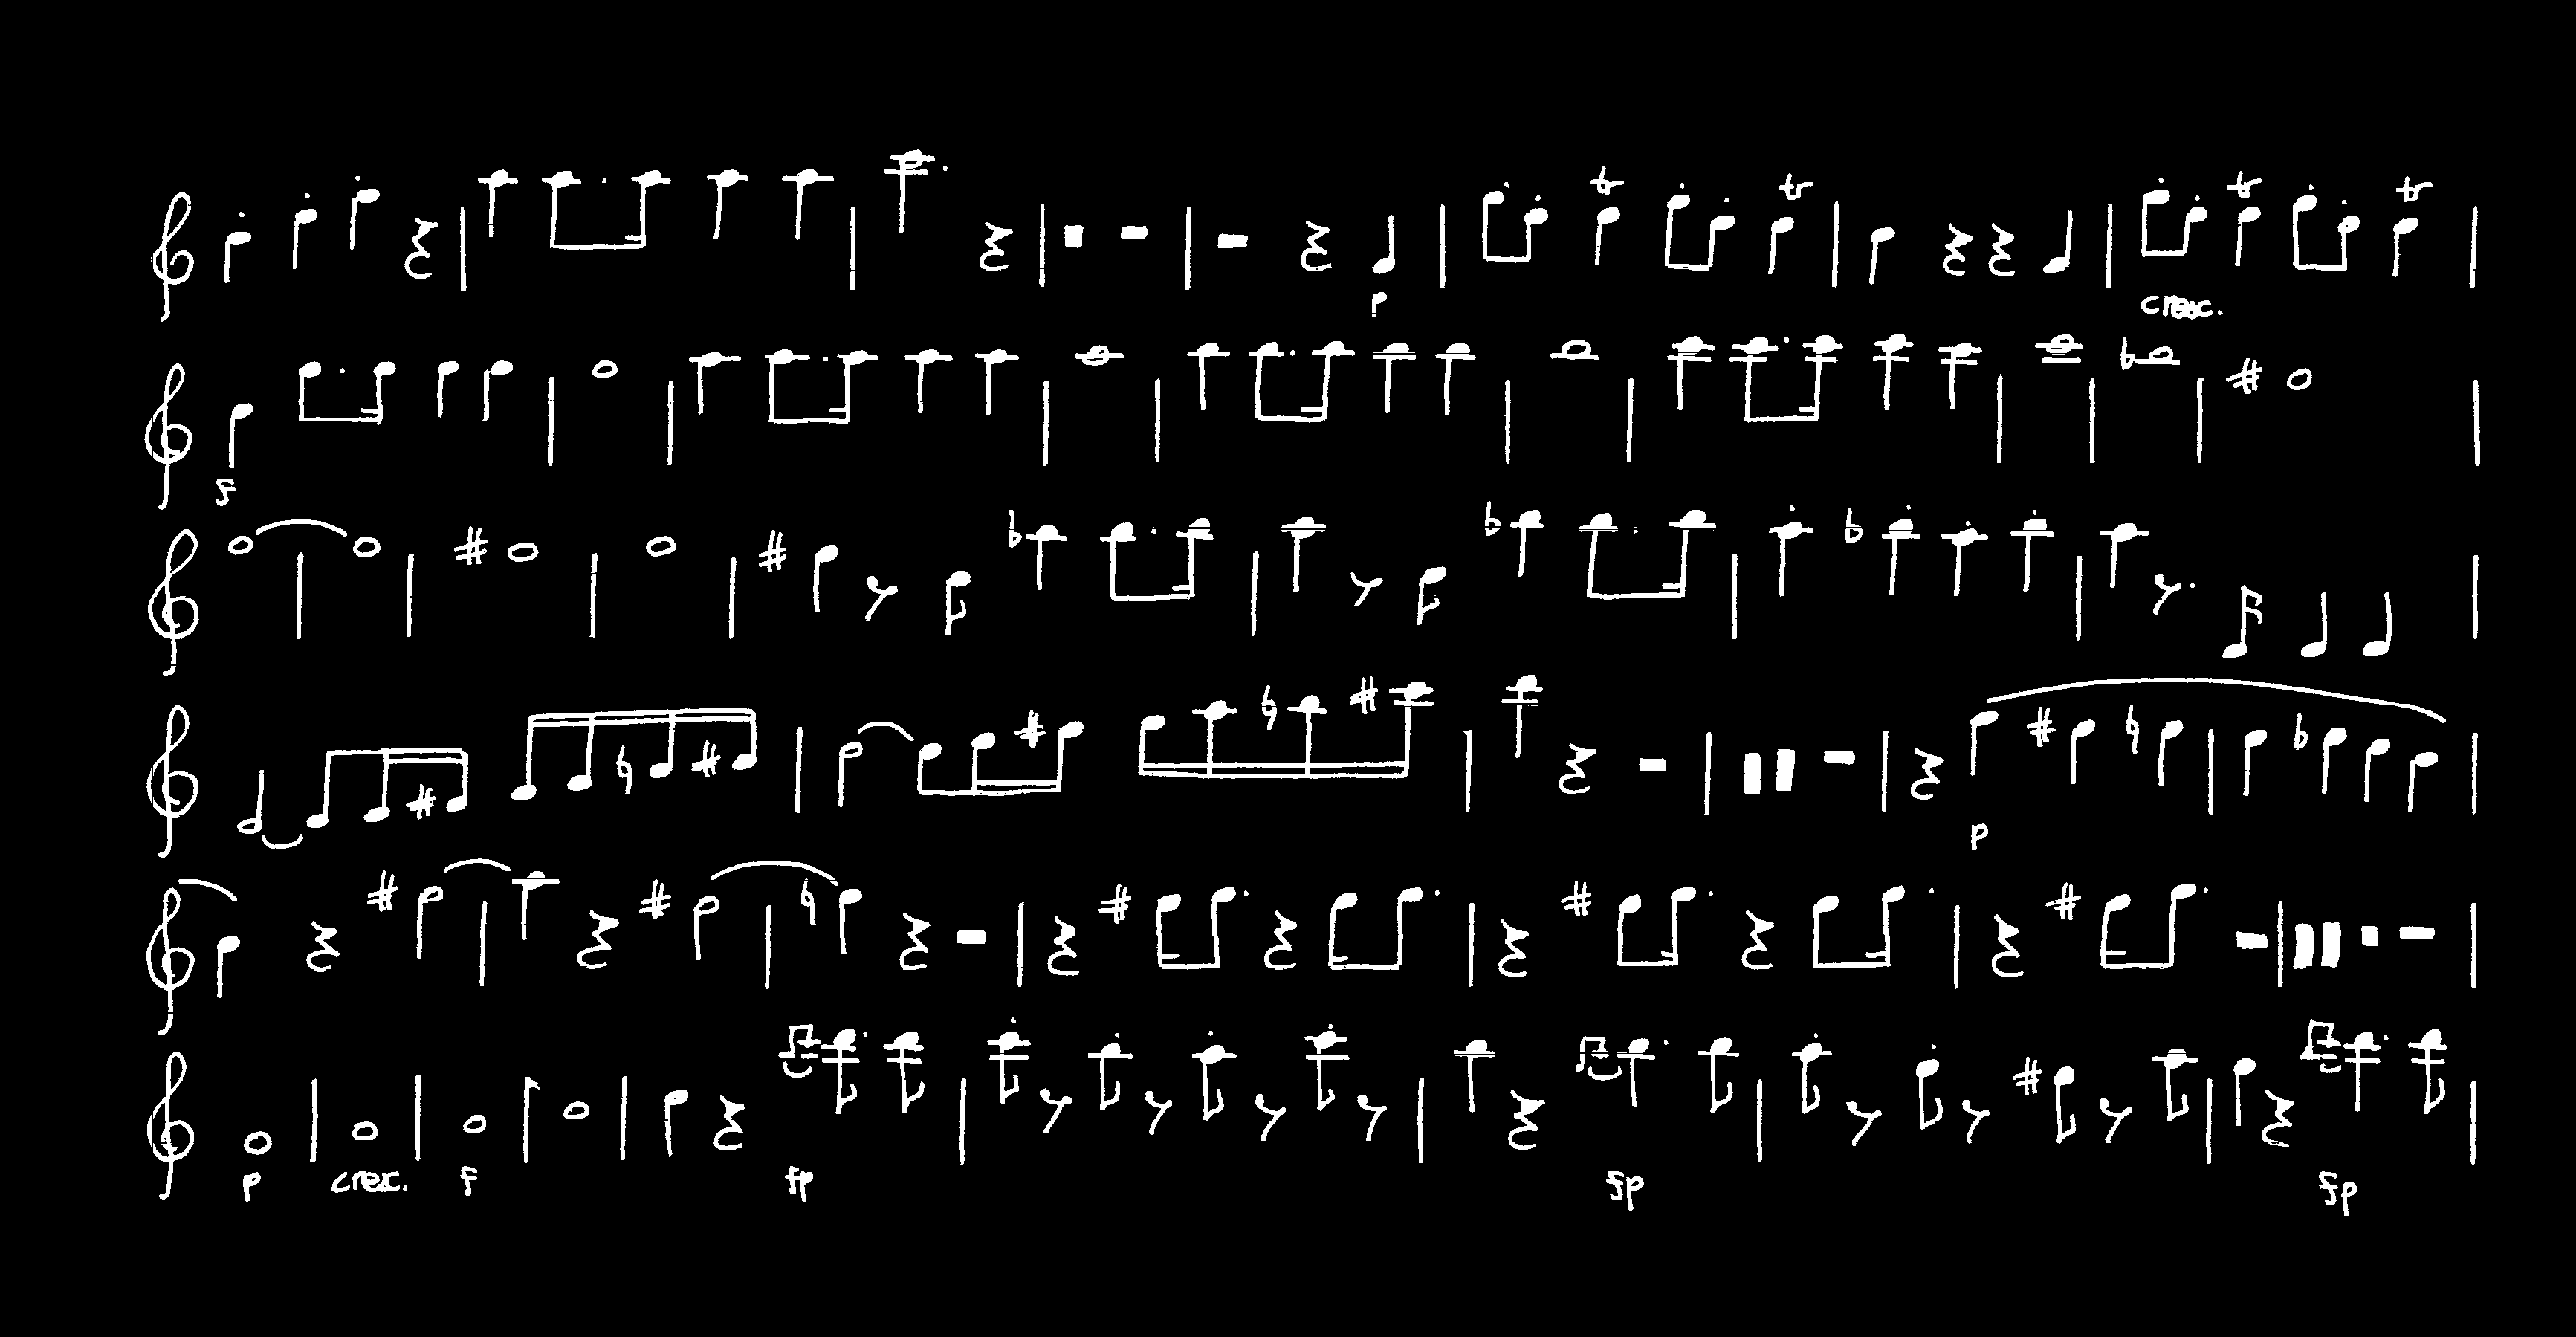 tr tr tr tr
p cresc.
f
p
p cresc. f fp fp fp